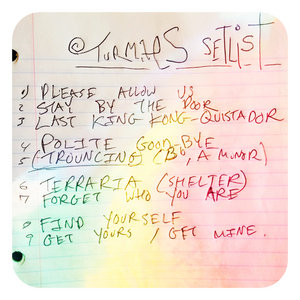 SETLIST
1 PLEASE ALLOW US
2 STAY BY THE DOOR
3 LAST KING KONG-QUISTADOR
4 POLITE GOODBYE
5 (TROUNCING) (BO, A MINOR)
6 TERRARIA (SHELTER)
7 FORGET WHO YOU ARE
8 FIND YOURSELF
9 GET YOURS / GET MINE.